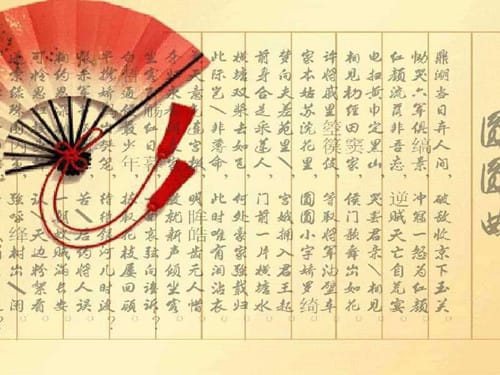 圆圆曲
鼎湖当日弃人间，破敌收京下玉关。
恸哭六军俱缟素，冲冠一怒为红颜。
红颜流落非吾恋，逆贼天亡自荒宴。
电扫黄巾定黑山，哭罢君亲再相见。
相见初经田窦家，侯门歌舞出如花。
许将戚里箜篌伎，等取将军油壁车。
家本姑苏浣花里，圆圆小字娇罗绮。
梦向夫差苑里游，宫娥拥入君王起。
前身合是采莲人，门前一片横塘水。
横塘双桨去如飞，何处豪家强载归。
此际岂知非薄命，此时唯有泪沾衣。
天意气连宫掖，明眸皓齿无人惜。
归永巷闭良家，教就新声倾坐客。
坐客飞觞红日暮，一曲哀弦向谁诉？
白通侯最少年，拣取花枝屡回顾。
早携娇鸟出樊笼，待得银河几时渡？
恨杀军书，苦留后约将人误。
相约恩深，一朝蚁贼满长安。
可怜思妇，认作天边粉絮看。
遍索绿珠围，强呼绛树出雕阑。